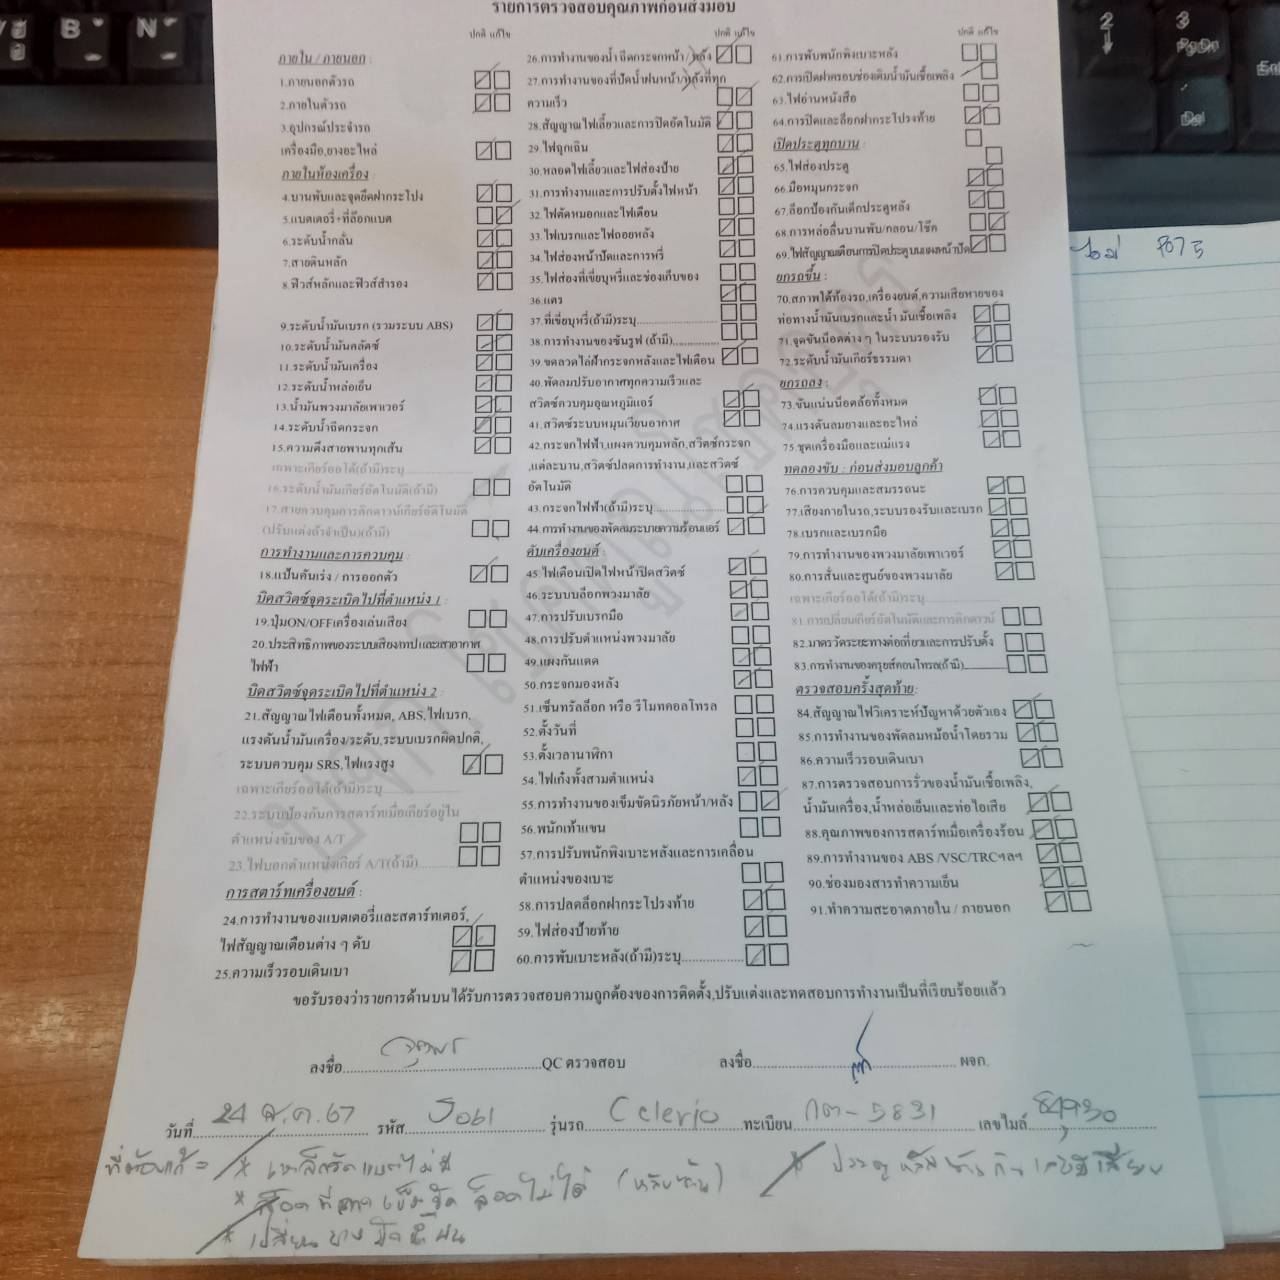 รายการตรวจสอบคุณภาพก่อนส่งมอบ
ปกติ แก้ไข
ภายใน / ภายนอก :
1.ภายนอกตัวรถ
2.ภายในตัวรถ
3.อุปกรณ์ประจำรถ
เครื่องมือ,ยางอะไหล่
ภายในห้องเครื่อง :
4.บานพับและจุดยึดฝากระโปง
5.แบตเตอรี่+ที่ล๊อกแบต
6.ระดับน้ำกลั่น
7.สายดินหลัก
8.ฟิวส์หลักและฟิวส์สำรอง
9.ระดับน้ำมันเบรก (รวมระบบ ABS)
10.ระดับน้ำมันคลัตช์
11.ระดับน้ำมันเครื่อง
12.ระดับน้ำหล่อเย็น
13.น้ำมันพวงมาลัยเพาเวอร์
14.ระดับน้ำฉีดกระจก
15.ความตึงสายพานทุกเส้น
เฉพาะเกียร์ออโต้(ถ้ามี)ระบุ
16.ระดับน้ำมันเกียร์อัตโนมัติ(ถ้ามี)
17.สายควบคุมการคิกดาวน์เกียร์อัติโนมัติ
(ปรับแต่งถ้าจำเป็น)(ถ้ามี)
การทำงานและการควบคุม :
18.แป้นคันเร่ง / การออกตัว
บิดสวิตช์จุดระเบิดไปที่ตำแหน่ง 1 :
19.ปุ่มON/OFFเครื่องเล่นเสียง
20.ประสิทธิภาพของระบบเสียง/เทปและเสาอากาศ
ไฟฟ้า
บิดสวิตช์จุดระเบิดไปที่ตำแหน่ง 2 :
21.สัญญาณไฟเตือนทั้งหมด, ABS,ไฟเบรก,
แรงดันน้ำมันเครื่อง/ระดับ,ระบบเบรกผิดปกติ,
ระบบควบคุม SRS,ไฟแรงสูง
เฉพาะเกียร์ออโต้(ถ้ามี)ระบุ
22.ระบบป้องกันการสตาร์ทเมื่อเกียร์อยู่ใน
ตำแหน่งขับของ A/T
23.ไฟบอกตำแหน่งเกียร์ A/T(ถ้ามี)
การสตาร์ทเครื่องยนต์ :
24.การทำงานของแบตเตอรี่และสตาร์ทเตอร์,
ไฟสัญญาณเตือนต่าง ๆ ดับ
25.ความเร็วรอบเดินเบา
ปกติ แก้ไข
26.การทำงานของน้ำฉีดกระจกหน้า/หลัง
27.การทำงานของที่ปัดน้ำฝนหน้า/หลังที่ทุก
ความเร็ว
28.สัญญาณไฟเลี้ยวและการปิดอัตโนมัติ
29.ไฟฉุกเฉิน
30.หลอดไฟเลี้ยวและไฟส่องป้าย
31.การทำงานและการปรับตั้งไฟหน้า
32.ไฟตัดหมอกและไฟเตือน
33.ไฟเบรกและไฟถอยหลัง
34.ไฟส่องหน้าปัดและการหรี่
35.ไฟส่องที่เขี่ยบุหรี่และช่องเก็บของ
36.แตร
37.ที่เขี่ยบุหรี่(ถ้ามี)ระบุ
38.การทำงานของซันรูฟ (ถ้ามี)
39.ขดลวดไล่ฝ้ากระจกหลังและไฟเตือน
40.พัดลมปรับอากาศทุกความเร็วและ
สวิตช์ควบคุมอุณหภูมิแอร์
41.สวิตช์ระบบหมุนเวียนอากาศ
42.กระจกไฟฟ้า,แผงควบคุมหลัก,สวิตช์กระจก
,แต่ละบาน,สวิตช์ปลดการทำงาน,และสวิตช์
อัตโนมัติ
43.กระจกไฟฟ้า(ถ้ามี)ระบุ
44.การทำงานของพัดลมระบายความร้อนแอร์
ดับเครื่องยนต์ :
45.ไฟเตือนเปิดไฟหน้าปิดสวิตช์
46.ระบบบล็อกพวงมาลัย
47.การปรับเบรกมือ
48.การปรับตำแหน่งพวงมาลัย
49.แผงกันแดด
50.กระจกมองหลัง
51.เซ็นทรัลล็อก หรือ รีโมทคอลโทรล
52.ตั้งวันที่
53.ตั้งเวลานาฬิกา
54.ไฟเก๋งทั้งสามตำแหน่ง
55.การทำงานของเข็มขัดนิรภัยหน้า/หลัง
56.พนักเท้าแขน
57.การปรับพนักพิงเบาะหลังและการเคลื่อน
ตำแหน่งของเบาะ
58.การปลดล็อกฝากระโปรงท้าย
59.ไฟส่องป้ายท้าย
60.การพับเบาะหลัง(ถ้ามี)ระบุ
ปกติ แก้ไข
61.การพับพนักพิงเบาะหลัง
62.การเปิดฝาครอบช่องเติมน้ำมันเชื้อเพลิง
63.ไฟอ่านหนังสือ
64.การปิดและล็อกฝากระโปรงท้าย
เปิดประตูทุกบาน :
65.ไฟส่องประตู
66.มือหมุนกระจก
67.ล็อกป้องกันเด็กประตูหลัง
68.การหล่อลื่นบานพับ/กลอน/โช๊ก
69.ไฟสัญญาณเตือนการปิดประตูบนแผงหน้าปัด
ยกรถขึ้น :
70.สภาพใต้ท้องรถ,เครื่องยนต์,ความเสียหายของ
ท่อทางน้ำมันเบรกและน้ำมันเชื้อเพลิง
71.จุดขันน๊อตต่าง ๆ ในระบบรองรับ
72.ระดับน้ำมันเกียร์ธรรมดา
ยกรถลง :
73.ขันแน่นน๊อตล้อทั้งหมด
74.แรงดันลมยางและอะไหล่
75.ชุดเครื่องมือและแม่แรง
ทดลองขับ : ก่อนส่งมอบลูกค้า
76.การควบคุมและสมรรถนะ
77.เสียงภายในรถ,ระบบรองรับและเบรก
78.เบรกและเบรกมือ
79.การทำงานของพวงมาลัยเพาเวอร์
80.การสั่นและศูนย์ของพวงมาลัย
เฉพาะเกียร์ออโต้(ถ้ามี)ระบุ
81.การเปลี่ยนเกียร์อัตโนมัติและการคิกดาวน์
82.มาตรวัดระยะทางต่อเที่ยวและการปรับตั้ง
83.การทำงานของครุยส์คอนโทรล(ถ้ามี)
ตรวจสอบครั้งสุดท้าย:
84.สัญญาณไฟวิเคราะห์ปัญหาด้วยตัวเอง
85.การทำงานของพัดลมหม้อน้ำโดยรวม
86.ความเร็วรอบเดินเบา
87.การตรวจสอบการรั่วของน้ำมันเชื้อเพลิง,
น้ำมันเครื่อง,น้ำหล่อเย็นและท่อไอเสีย
88.คุณภาพของการสตาร์ทเมื่อเครื่องร้อน
89.การทำงานของ ABS /VSC/TRCฯลฯ
90.ช่องมองสารทำความเย็น
91.ทำความสะอาดภายใน / ภายนอก
ขอรับรองว่ารายการด้านบนได้รับการตรวจสอบความถูกต้องของการติดตั้ง,ปรับแต่งและทดสอบการทำงานเป็นที่เรียบร้อยแล้ว
ลงชื่อ QC ตรวจสอบ ลงชื่อ ผจก.
วันที่ 24 ส.ค.67 รหัส รุ่นรถ Celerio ทะเบียน กต-5831 เลขไมล์ 84930
ที่ต้องแก้ = * เหล็กรัดแบตไม่มี * ประตูหลังซ้าย
* ล็อค เข็มขัด ล็อคไม่ได้ (หลังซ้าย)
* เปลี่ยน ยางปัดน้ำฝน
B N
2 3
PgDn
Del